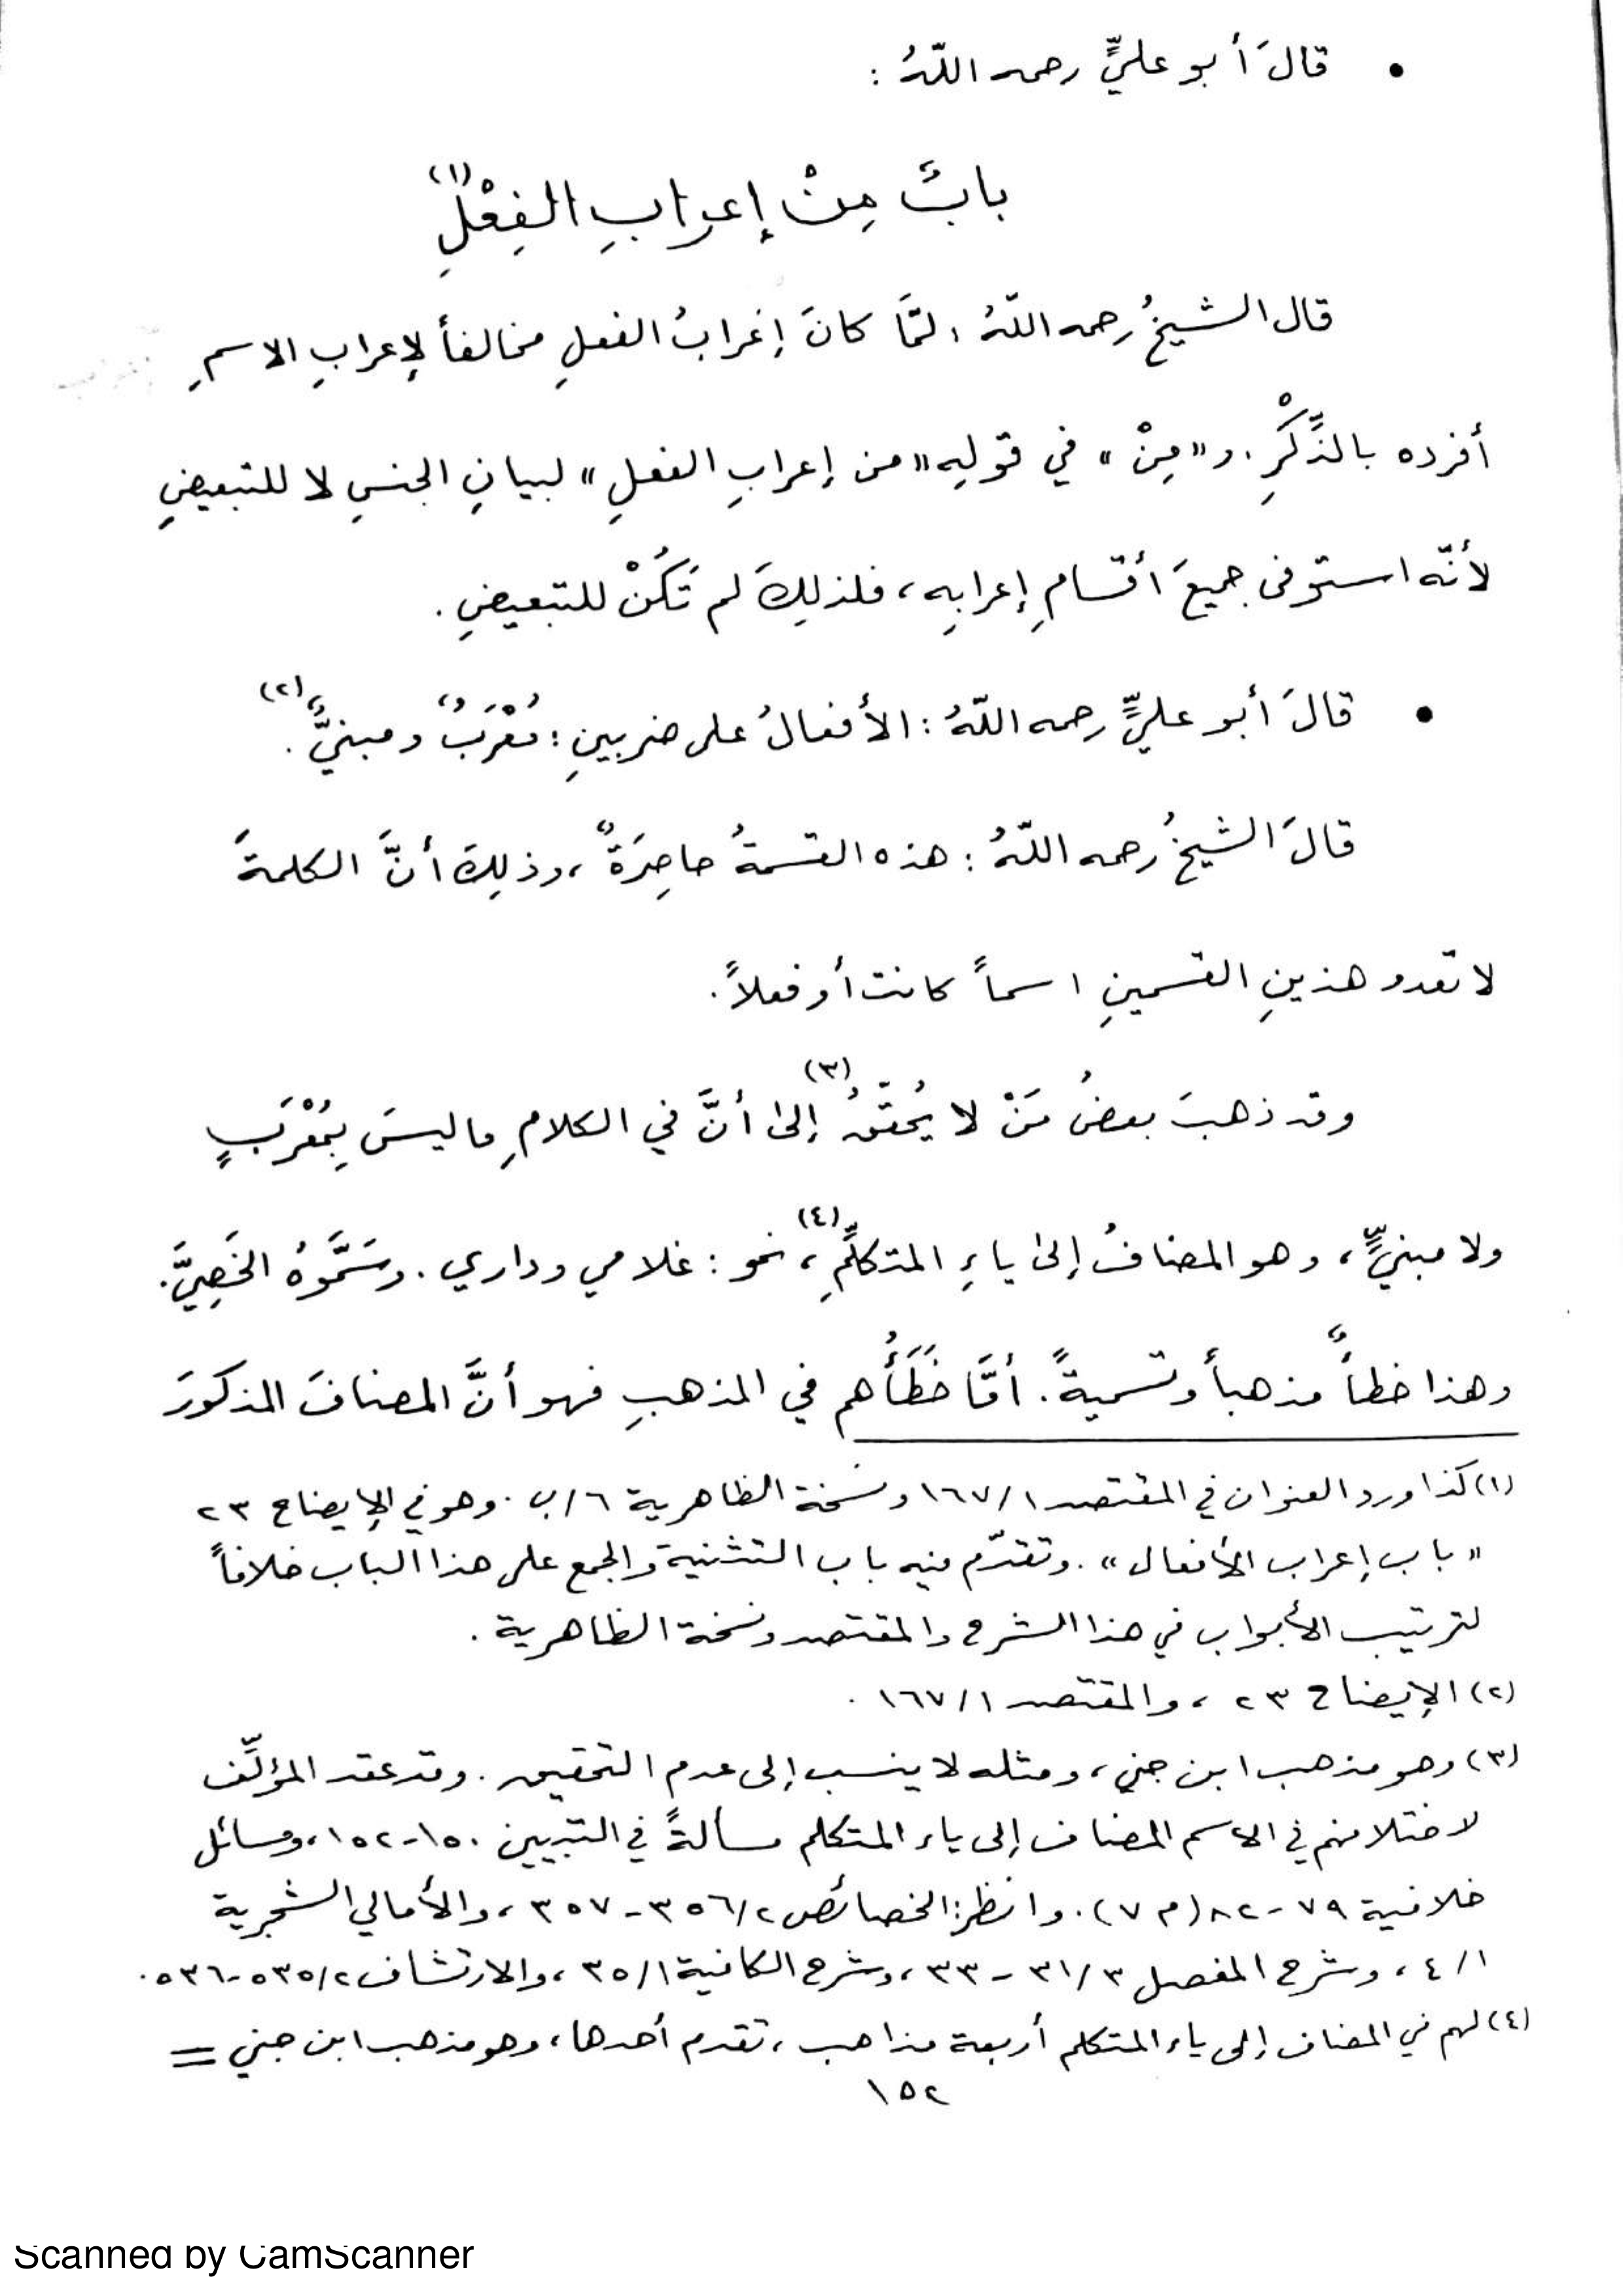 • قالَ أبو عليٍّ رحمه اللّهُ :
بابٌ مِنْ إعرابِ الفِعْلِ (١)
قال الشيخُ رحمه اللّهُ : لمَّا كانَ إعْرابُ الفعلِ مخالفاً لإعرابِ الاسمِ
أفرده بالذِّكْرِ. و«مِنْ» في قولِهِ «من إعرابِ الفعلِ» لبيانِ الجنسِ لا للتبعيضِ
لأنّه استوفى جميعَ أقسامِ إعرابِهِ، فلذلِكَ لم تَكُنْ للتبعيضِ.
• قالَ أبو عليٍّ رحمه اللّهُ : الأفعالُ على ضربينِ : مُعْرَبٌ ومبنيٌّ (٢).
قالَ الشيخُ رحمه اللّهُ : هذه القسمةُ حاصِرَةٌ، وذلِكَ أنَّ الكلمةَ
لا تعدو هذينِ القسمينِ اسماً كانت أو فعلاً.
وقد ذهبَ بعضُ مَنْ لا يُحقّقُ (٣) إلى أنَّ في الكلامِ ما ليسَ بِمُعْرَبٍ
ولا مبنيٍّ، وهو المضافُ إلى ياءِ المتكلِّمِ (٤)، نحو : غلامي وداري. وسَمَّوهُ الخَصِيَّ.
وهذا خطأٌ مذهباً وتسميةً. أمَّا خَطَأُهم في المذهبِ فهو أنَّ المضافَ المذكورَ
(١) كذا ورد العنوان في المقتصد ١٦٧/١ ونسخة الظاهرية ٦/ب. وهو في الإيضاح ٢٣
«باب إعراب الأفعال». وتقدّم فيه باب التثنية والجمع على هذا الباب خلافاً
لترتيب الأبواب في هذا الشرح والمقتصد ونسخة الظاهرية.
(٢) الإيضاح ٢٣ ، والمقتصد ١٦٧/١ .
(٣) وهو مذهب ابن جني، ومثله لا ينسب إلى عدم التحقيق. وقد عقد المؤلِّف
لاختلافهم في الاسم المضاف إلى ياء المتكلم مسألةً في التبيين ١٥٠-١٥٢، ومسائل
خلافية ٧٩-٨٢ (م ٧). وانظر: الخصائص ٣٥٦/٢-٣٥٧، والأمالي الشجرية
٤/١، وشرح المفصل ٣١/٣-٣٣، وشرح الكافية ٣٥/١، والارتشاف ٥٣٥/٢-٥٣٦.
(٤) لهم في المضاف إلى ياء المتكلم أربعة مذاهب، تقدم أحدها، وهو مذهب ابن جني =
١٥٢
Scanned by CamScanner